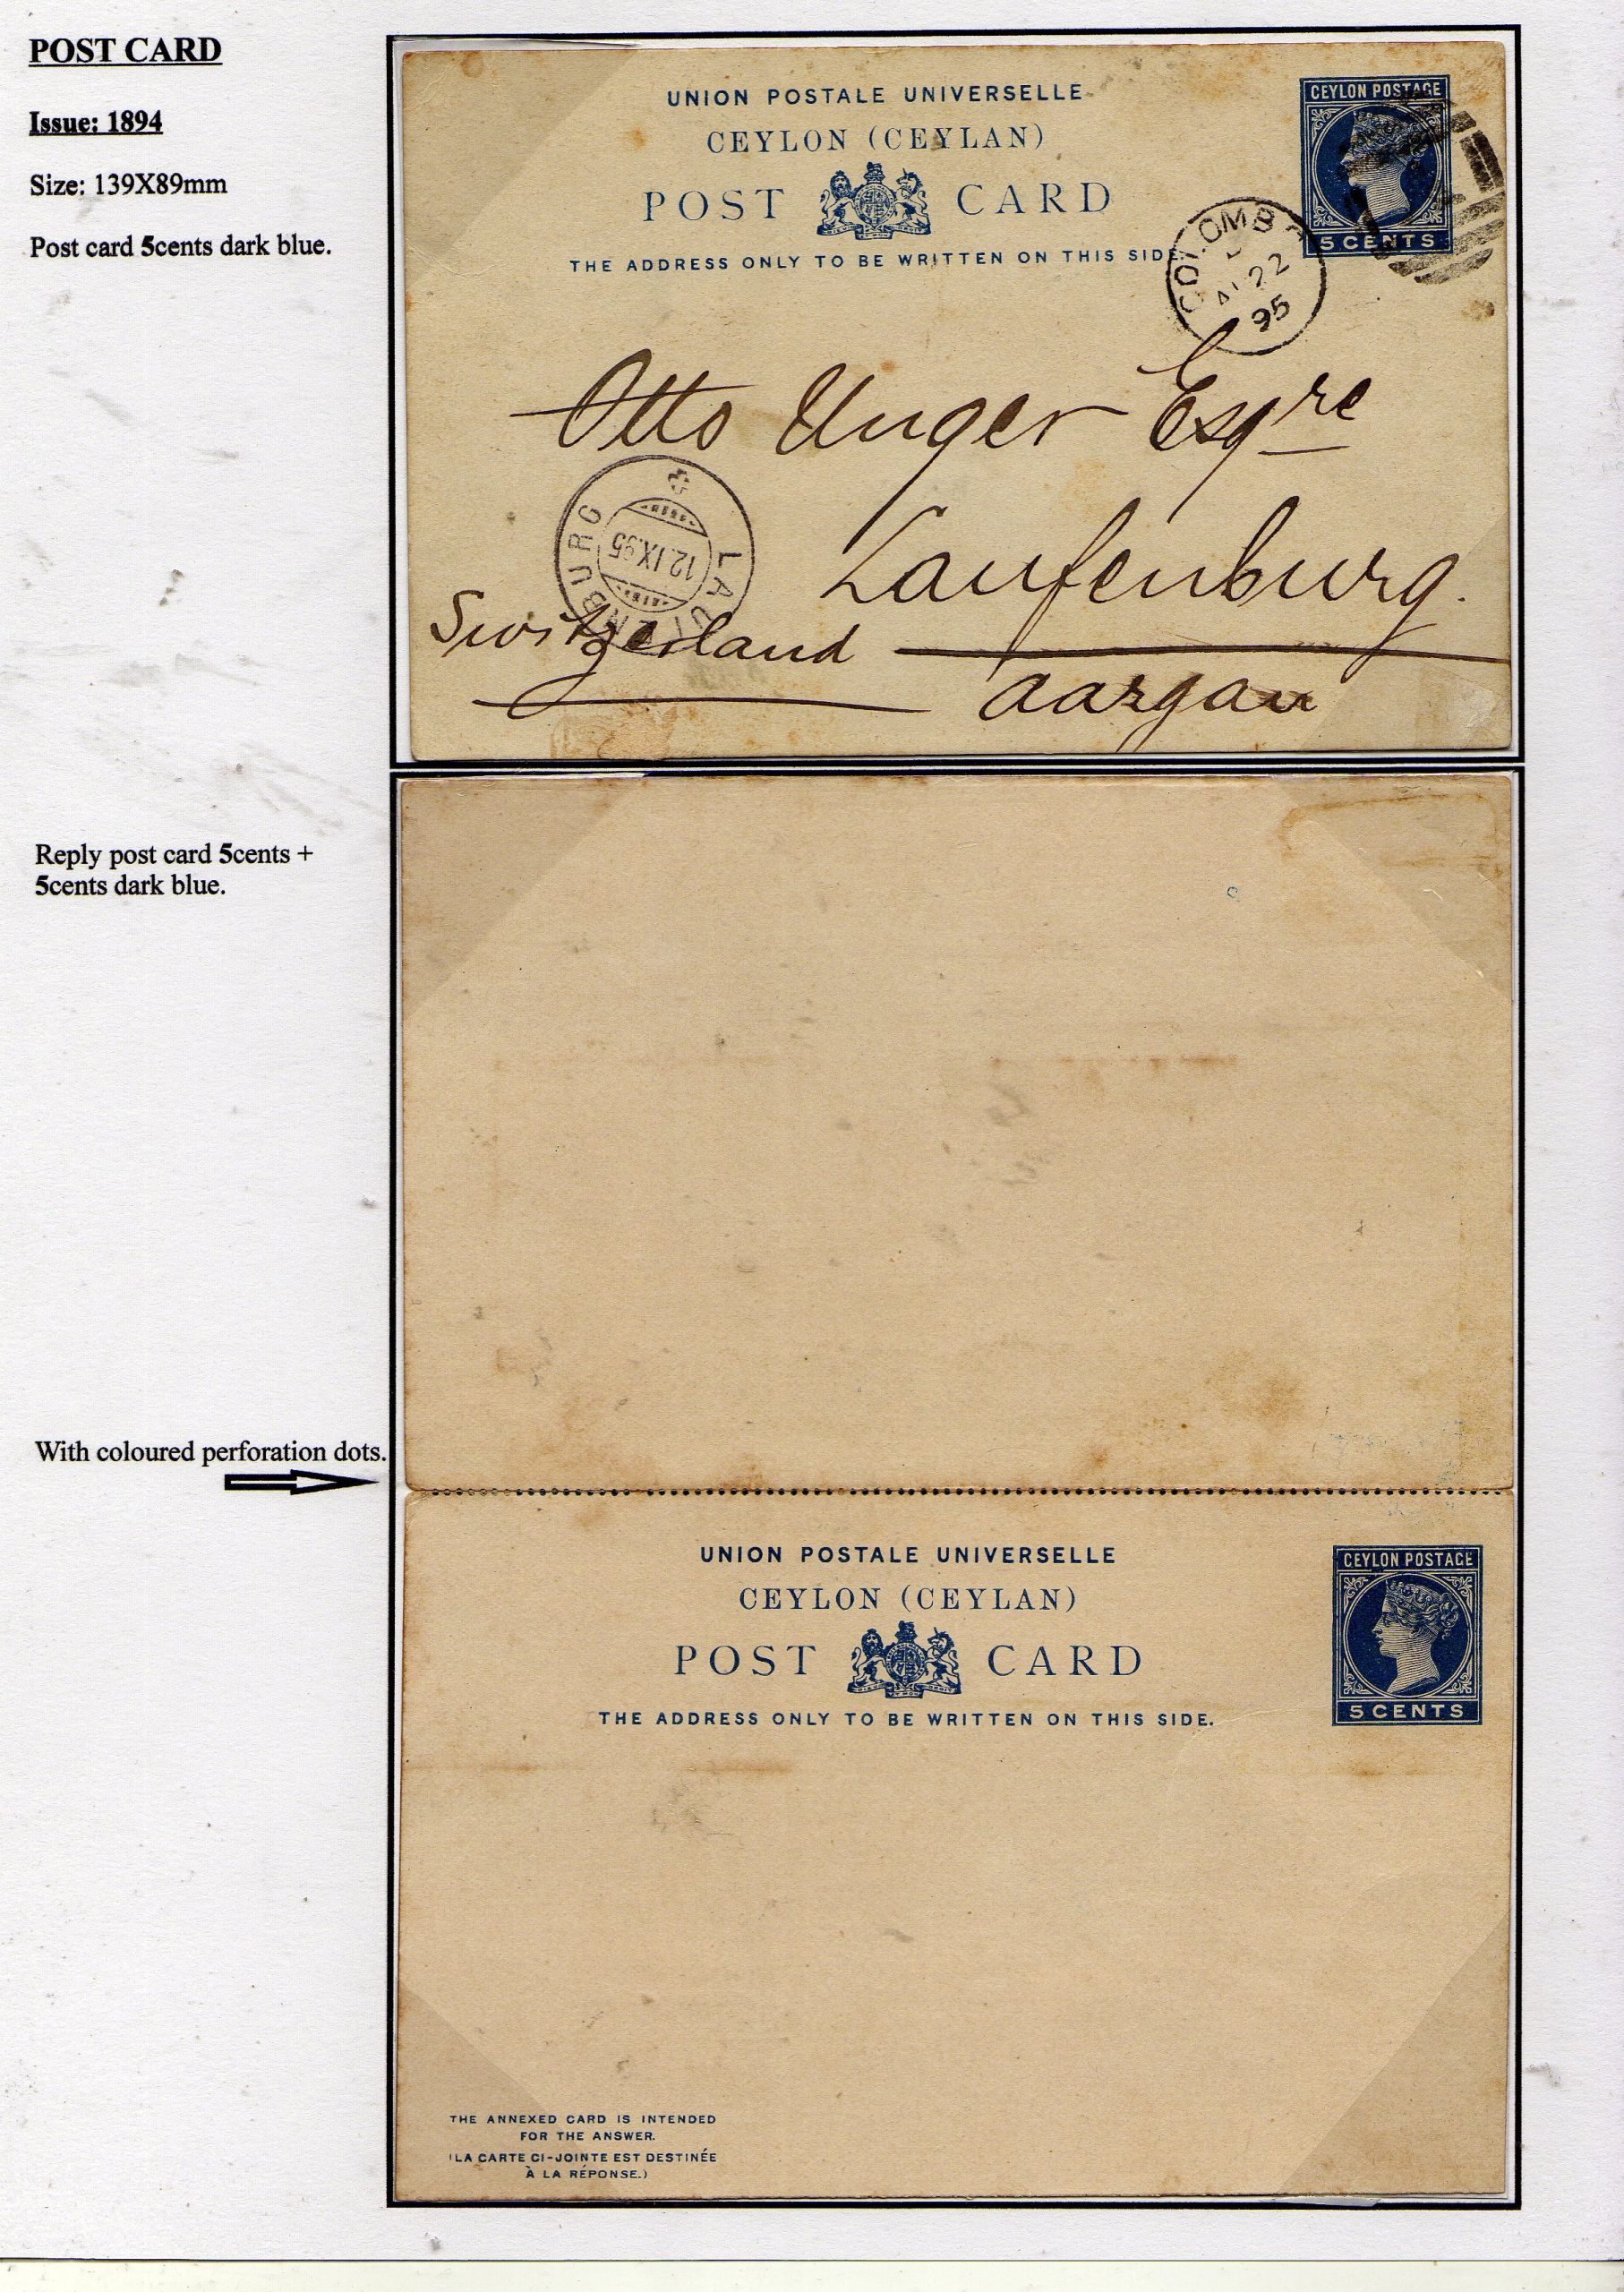 POST CARD
Issue: 1894
Size: 139X89mm
Post card 5cents dark blue.
UNION POSTALE UNIVERSELLE
CEYLON (CEYLAN)
POST CARD
THE ADDRESS ONLY TO BE WRITTEN ON THIS SIDE.
CEYLON POSTAGE
5 CENTS
COLOMB
22
95
Otto Unger Esqre
Laufenburg.
Switzerland
Aargau
LAUFENBURG
12.IX.95
Reply post card 5cents +
5cents dark blue.
With coloured perforation dots.
UNION POSTALE UNIVERSELLE
CEYLON (CEYLAN)
POST CARD
THE ADDRESS ONLY TO BE WRITTEN ON THIS SIDE.
CEYLON POSTAGE
5 CENTS
THE ANNEXED CARD IS INTENDED
FOR THE ANSWER.
(LA CARTE CI-JOINTE EST DESTINÉE
À LA RÉPONSE.)